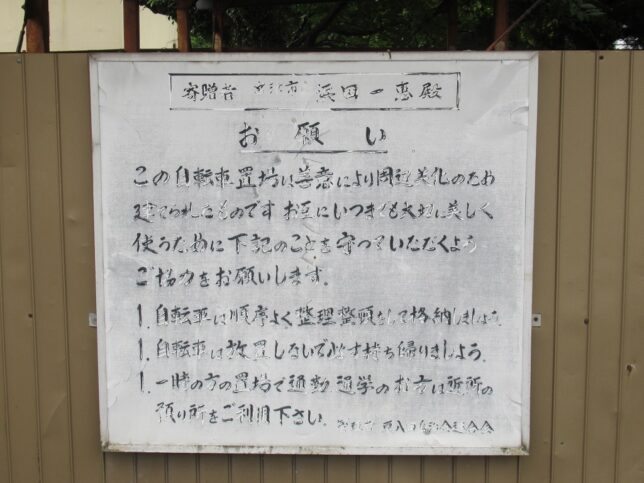 寄贈者 浜田一恵殿
お願い
この自転車置場は善意により周辺美化のため
建てられたものです お互にいつまでも大切に美しく
使うために下記のことを守っていただくよう
ご協力をお願いします.
1. 自転車は順序よく整理整頓をして格納しましょう.
1. 自転車は放置しないで必ず持ち帰りましょう.
1. 一時の方の置場で通勤通学のお方は近所の
預り所をご利用下さい.